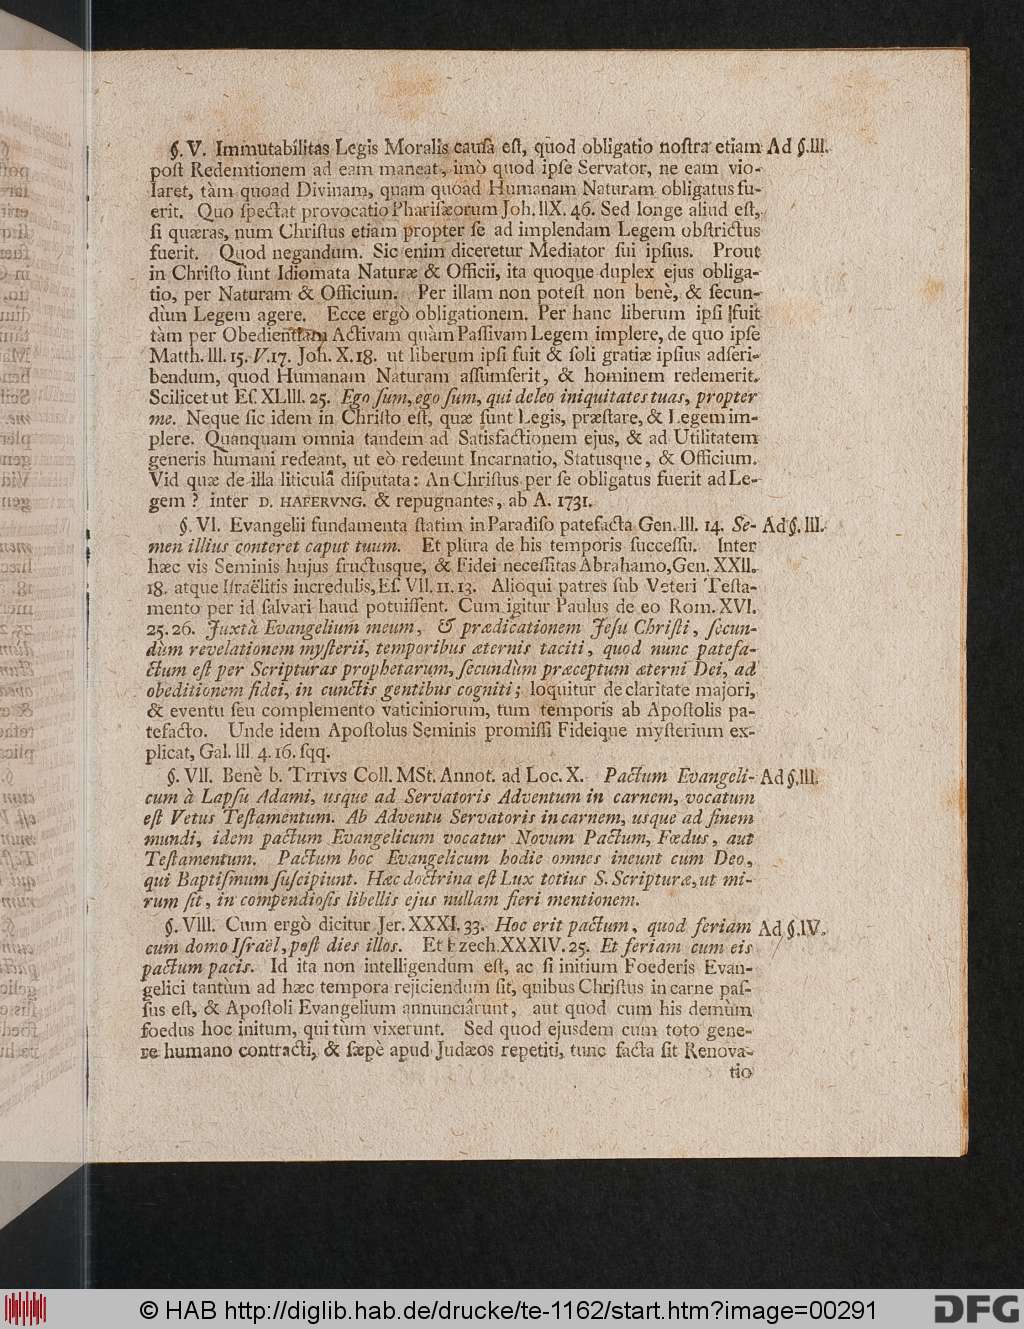 §. V. Immutabilitas Legis Moralis cauſa eſt, quod obligatio noſtra etiam Ad §.III.
poſt Redemtionem ad eam maneat, imò quod ipſe Servator, ne eam vio-
laret, tàm quoad Divinam, quam quoad Humanam Naturam obligatus fu-
erit. Quo ſpectat provocatio Phariſæorum Joh. IIX. 46. Sed longe aliud eſt,
ſi quæras, num Chriſtus etiam propter ſe ad implendam Legem obſtrictus
fuerit. Quod negandum. Sic enim diceretur Mediator ſui ipſius. Prout
in Chriſto ſunt Idiomata Naturæ & Officii, ita quoque duplex ejus obliga-
tio, per Naturam & Officium. Per illam non poteſt non benè, & ſecun-
dùm Legem agere. Ecce ergò obligationem. Per hanc liberum ipſi fuit
tàm per Obedientiam Activam quàm Paſſivam Legem implere, de quo ipſe
Matth. III. 15. V. 17. Joh. X. 18. ut liberum ipſi fuit & ſoli gratiæ ipſius adſeri-
bendum, quod Humanam Naturam aſſumſerit, & hominem redemerit.
Scilicet ut Eſ. XLIII. 25. Ego ſum, ego ſum, qui deleo iniquitates tuas, propter
me. Neque ſic idem in Chriſto eſt, quæ ſunt Legis, præſtare, & Legem im-
plere. Quanquam omnia tandem ad Satisfactionem ejus, & ad Utilitatem
generis humani redeant, ut eò redeunt Incarnatio, Statusque, & Officium.
Vid quæ de illa liticulâ diſputata: An Chriſtus per ſe obligatus fuerit ad Le-
gem? inter D. HAFERVNG. & repugnantes, ab A. 1731.
§. VI. Evangelii fundamenta ſtatim in Paradiſo patefacta Gen. III. 14. Se- Ad §. III.
men illius conteret caput tuum. Et plura de his temporis ſucceſſu. Inter
hæc vis Seminis hujus fructusque, & Fidei neceſſitas Abrahamo, Gen. XXII.
18. atque Iſraëlitis incredulis, Eſ. VII. 11. 13. Alioqui patres ſub Veteri Teſta-
mento per id ſalvari haud potuiſſent. Cum igitur Paulus de eo Rom. XVI.
25. 26. Juxtà Evangelium meum, & prædicationem Jeſu Chriſti, ſecun-
dùm revelationem myſterii, temporibus æternis taciti, quod nunc patefa-
ctum eſt per Scripturas prophetarum, ſecundùm præceptum æterni Dei, ad
obeditionem fidei, in cunctis gentibus cogniti; loquitur de claritate majori,
& eventu ſeu complemento vaticiniorum, tum temporis ab Apoſtolis pa-
tefacto. Unde idem Apoſtolus Seminis promiſſi Fideique myſterium ex-
plicat, Gal. III 4. 16. ſqq.
§. VII. Benè b. TITIVS Coll. MSt. Annot. ad Loc. X. Pactum Evangeli- Ad §.III.
cum à Lapſu Adami, usque ad Servatoris Adventum in carnem, vocatum
eſt Vetus Teſtamentum. Ab Adventu Servatoris in carnem, usque ad finem
mundi, idem pactum Evangelicum vocatur Novum Pactum, Fœdus, aut
Teſtamentum. Pactum hoc Evangelicum hodie omnes ineunt cum Deo,
qui Baptiſmum ſuſcipiunt. Hæc doctrina eſt Lux totius S. Scripturæ, ut mi-
rum ſit, in compendioſis libellis ejus nullam fieri mentionem.
§. VIII. Cum ergò dicitur Jer. XXXI. 33. Hoc erit pactum, quod feriam Ad §.IV.
cum domo Iſraël, poſt dies illos. Et Ezech. XXXIV. 25. Et feriam cum eis
pactum pacis. Id ita non intelligendum eſt, ac ſi initium Foederis Evan-
gelici tantùm ad hæc tempora rejiciendum ſit, quibus Chriſtus in carne paſ-
ſus eſt, & Apoſtoli Evangelium annunciârunt, aut quod cum his demùm
foedus hoc initum, qui tùm vixerunt. Sed quod ejusdem cum toto gene-
re humano contracti, & ſæpè apud Judæos repetiti, tunc facta ſit Renova-
tio
© HAB http://diglib.hab.de/drucke/te-1162/start.htm?image=00291
DFG